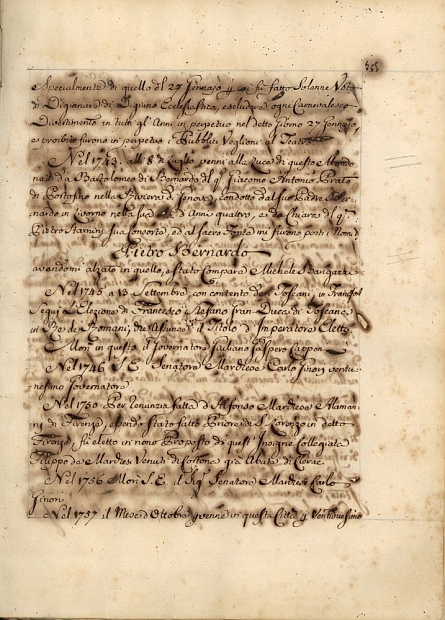 e Specialmente di quello del 27 Gennajo p. cui fù fatto Solenne Voto
di Digiunare di Digiuno Ecclesiastico, escludere ogni Carnevalesco
Divertimento in tutti gl'Anni in perpetuo nel detto Giorno 27 Gennajo,
e proibiti furono in perpetuo i Pubblici Veglioni al Teatro
Nel 1743. alli 8 di Luglio venni alla Luce di questo Mondo
nato da Bartolomeo di Bernardo del q. Giacomo Antonio Prato
di Portofino nella Riviera di Genova, condotto dal suo Padre Ber-
nardo in Livorno nella sua di Anni quattro, e da Chiara del q.
Pietro Stamini sua Consorte, ed al Sacro Fonte mi furono posti i Nomi di
Pietro Bernardo
avendomi alzato in quello, e stato Compare Michele
Nel 1745 a 13 Settembre, con contento de' Toscani, in
seguì l'Elezione di Francesco Stefano Gran-Duca di Toscana
in Re de Romani, che assunse il Titolo d'Imperatore Eletto
Morì in questo il Governatore Giuliano Gaspero Capponi
Nel 1746 S. E. Senatore Marchese Carlo Ginori ventu-
nesimo Governatore
Nel 1750 Per renunzia fatta di Alfonso Marchese Alaman-
ni di Firenze, essendo stato fatto Priore di S. Lorenzo in detto
Firenze, fù eletto in nono Proposto di quest'Insigne Collegiata
Filippo de Marchesi Venuti di Cortona già Abate di Clerac.
Nel 1756 Morì S. E. il Sig. Senatore Marchese Carlo
Ginori
Nel 1757 il Mese d'Ottobre venne in questa Città p. Ventiduesimo